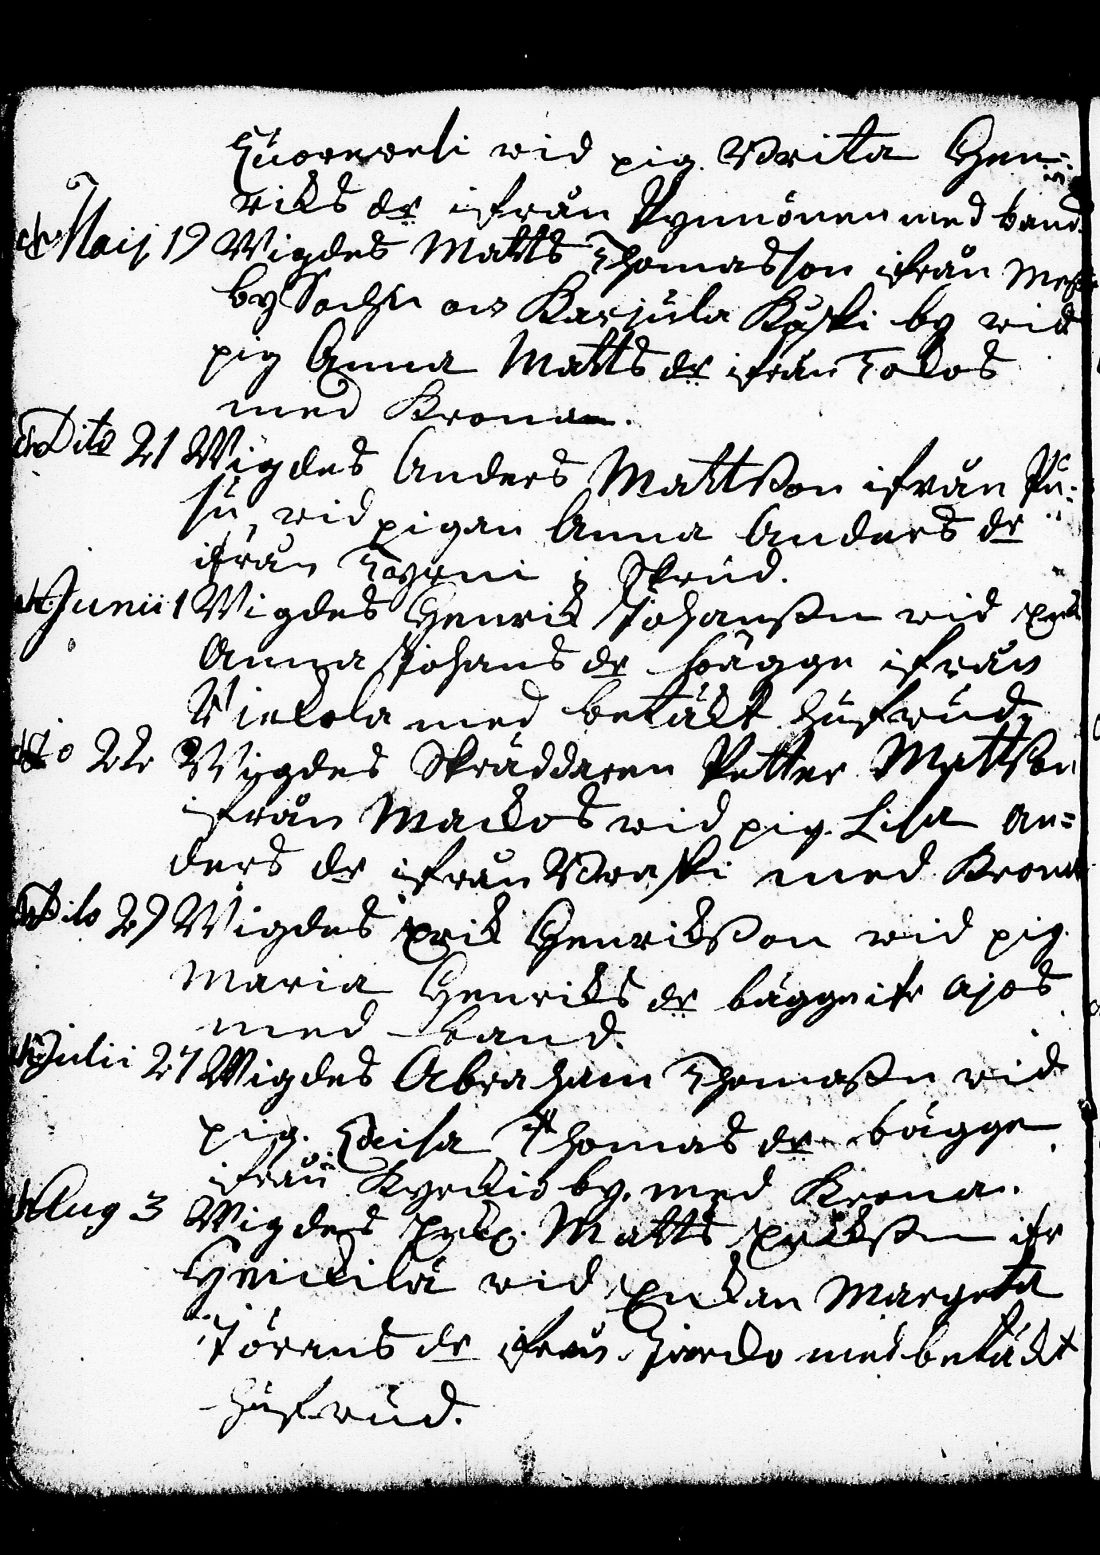 wid pig. Brita Hen=
riks dr ifrån Pynnönen med band.
d. Maij 19 Wigdes Matts Thomasson ifrån
by Sochn och Karjula Koski by wid
pig Anna Matts dr ifrån
med Krona.
d. Dito 21 Wigdes Anders Mattsson ifrån Pu=
su, wid pigan Anna Anders dr
ifrån i Skrud.
d. Junii 1 Wigdes Henrik Johansson wid
Anna Johans dr bägge ifrån
Wickola med betäkt hufwud.
d. 22 Wigdes Skräddaren Petter Mattsson
ifrån Mackos wid pig. Lisa An=
ders dr ifrån med Krona
d. Dito 29 Wigdes Erik Henriksson wid pig.
Maria Henriks dr bägge ifr Ajos
med band.
d. Julii 27 Wigdes Abraham Thomasson wid
pig. Caisa Thomas dr bägge
ifrån Kyrckio by. med Krona.
d. Aug 3 Wigdes Matts Ericksson ifr
Heickilä wid Enckan Margeta
Jörans dr ifrån med betäckt
hufwud.